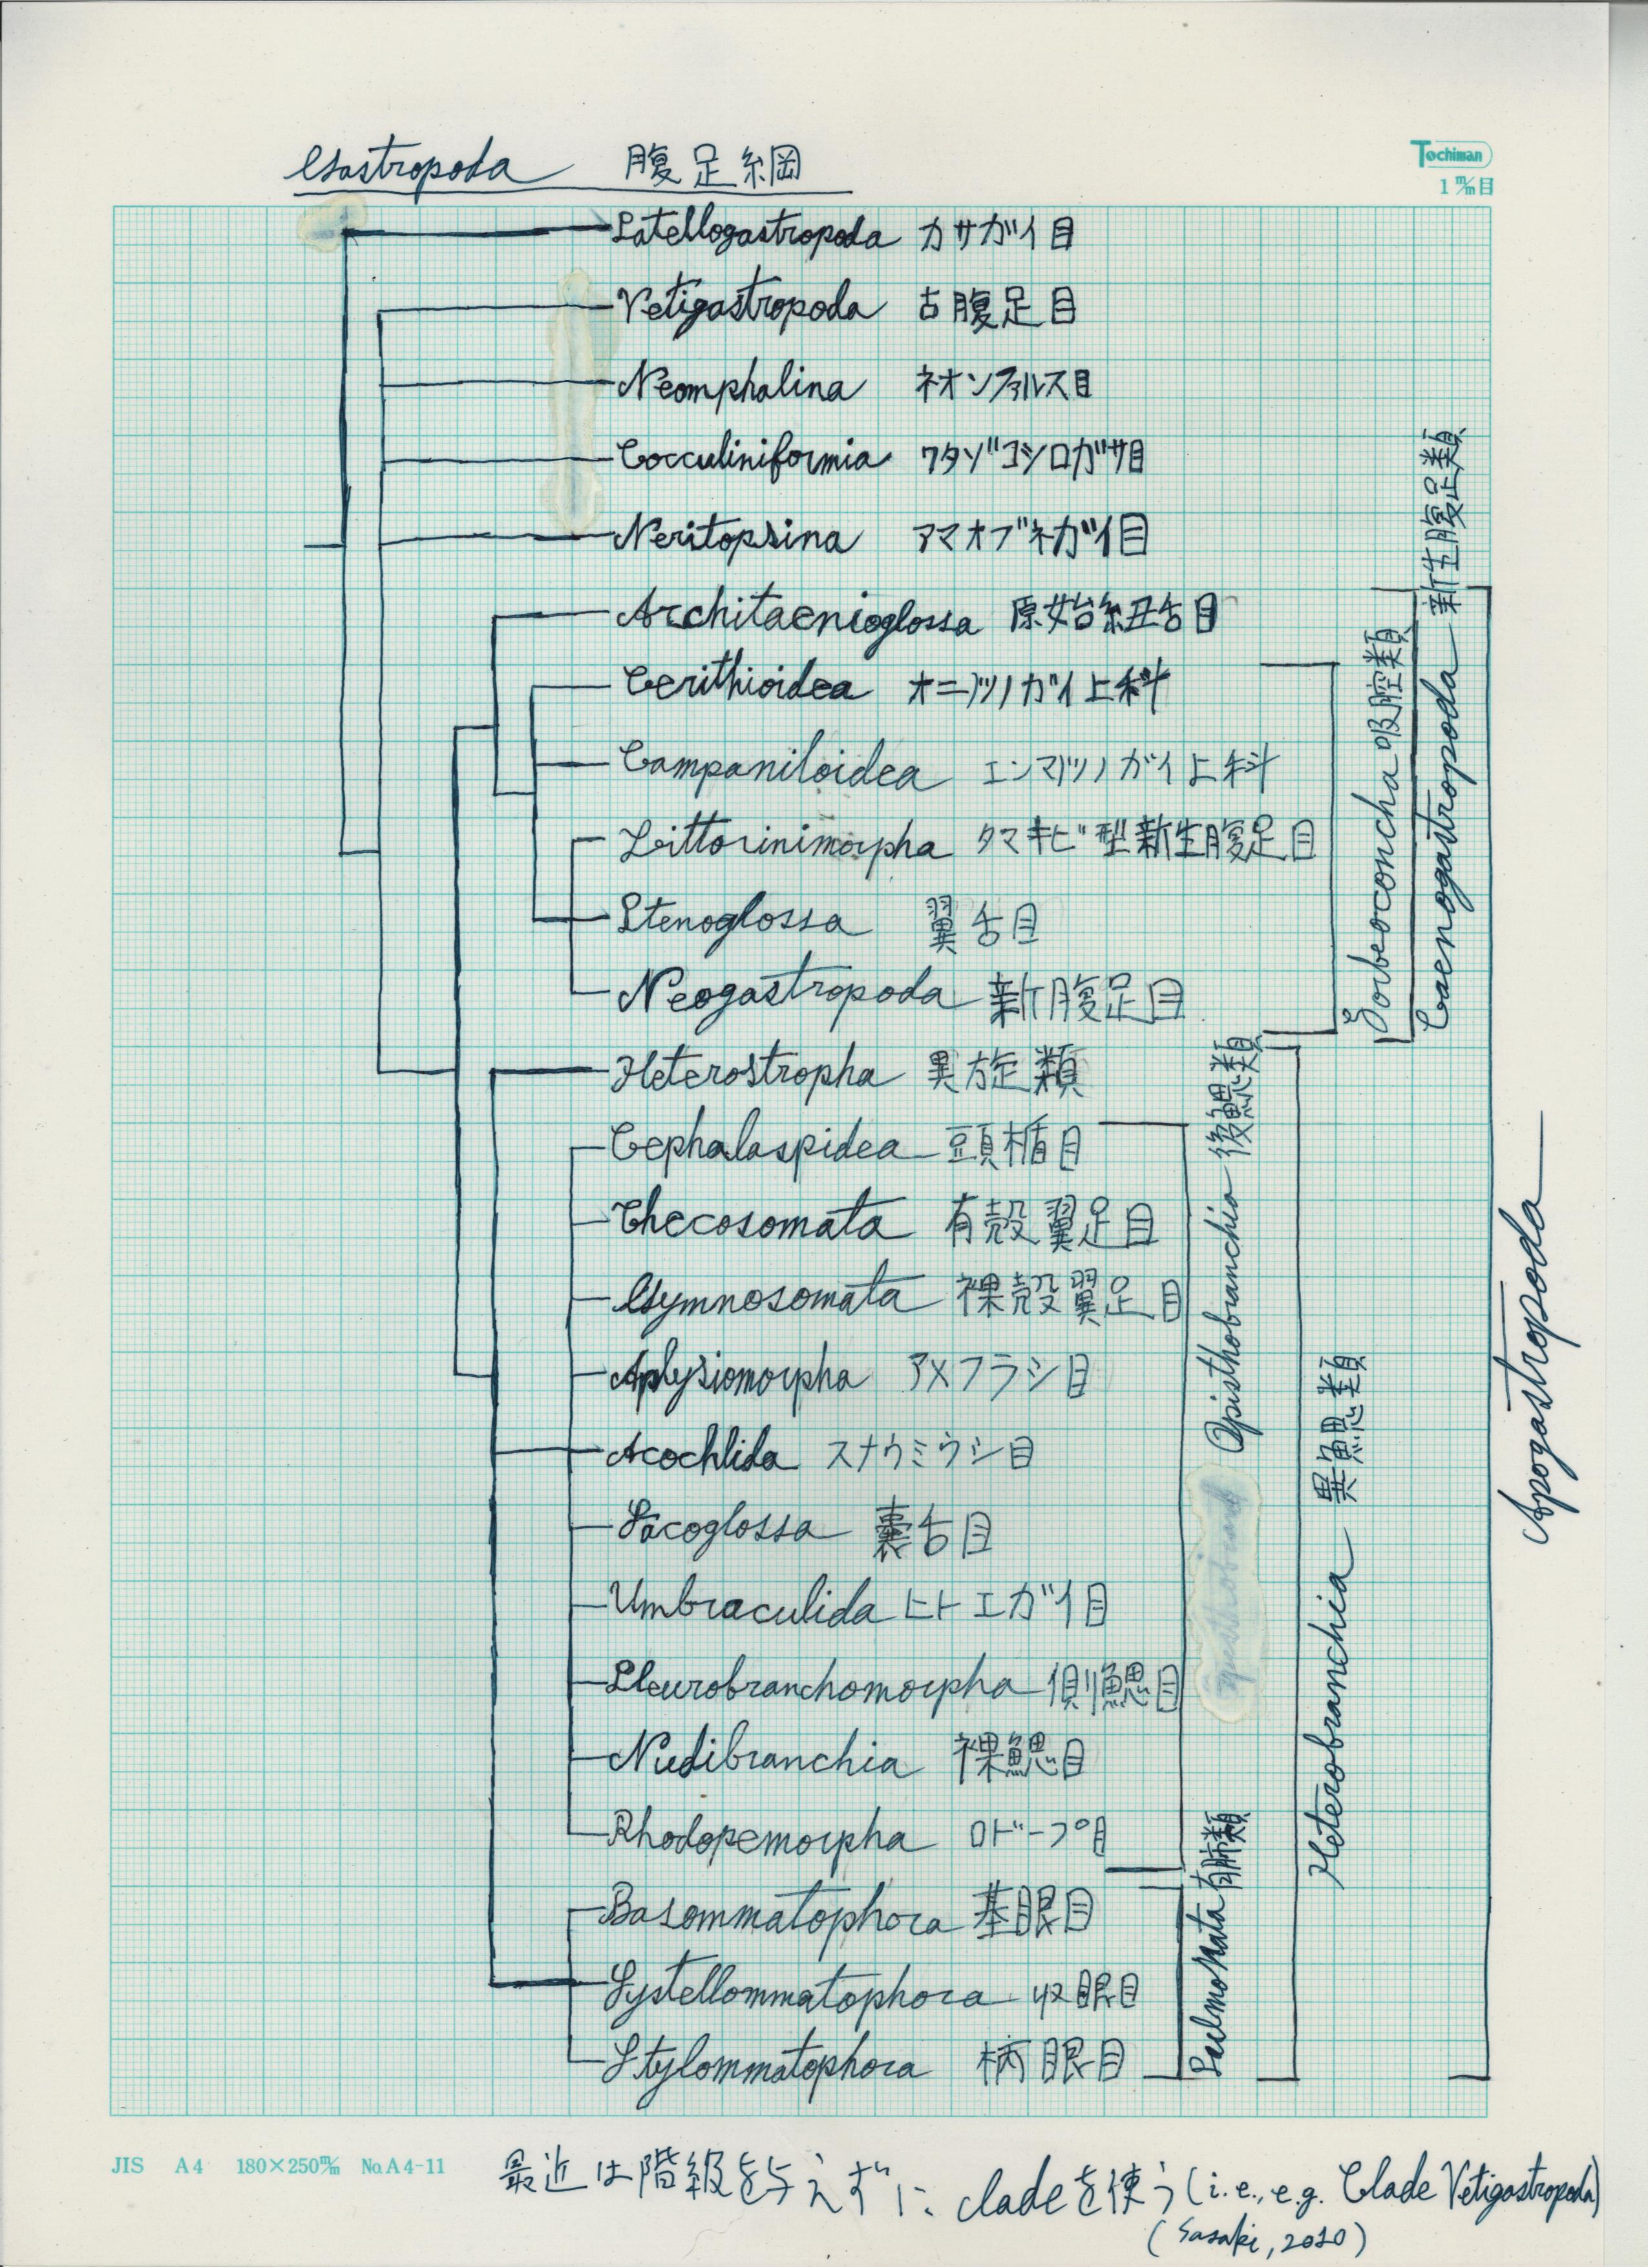 Gastropoda 腹足綱
Tochiman
1 m/m目
Patellogastropoda カサガイ目
Vetigastropoda 古腹足目
Neomphalina ネオンファルス目
Cocculiniformia ワタゾコシロガサ目
Neritopsina アマオブネガイ目
Architaenioglossa 原始紐舌目
Cerithioidea オニノツノガイ上科
Campaniloidea エンマノツノガイ上科
Littorinimorpha タマキビ型新生腹足目
Ptenoglossa 翼舌目
Neogastropoda 新腹足目
Heterostropha 異旋類
Cephalaspidea 頭楯目
Thecosomata 有殻翼足目
Gymnosomata 裸殻翼足目
Aplysiomorpha アメフラシ目
Acochlida スナウミウシ目
Sacoglossa 嚢舌目
Umbraculida ヒトエガイ目
Pleurobranchomorpha 側鰓目
Nudibranchia 裸鰓目
Rhodopemorpha ロドープ目
Basommatophora 基眼目
Systellommatophora 収眼目
Stylommatophora 柄眼目
Sorbeoconcha 吸腔類
Caenogastropoda 新生腹足類
Opisthobranchia 後鰓類
Pulmonata 有肺類
Heterobranchia 異鰓類
Apogastropoda
JIS A4 180×250m/m No.A4-11
最近は階級を与えずに、cladeを使う(i.e., e.g. Clade Vetigastropoda)
(Sasaki, 2010)